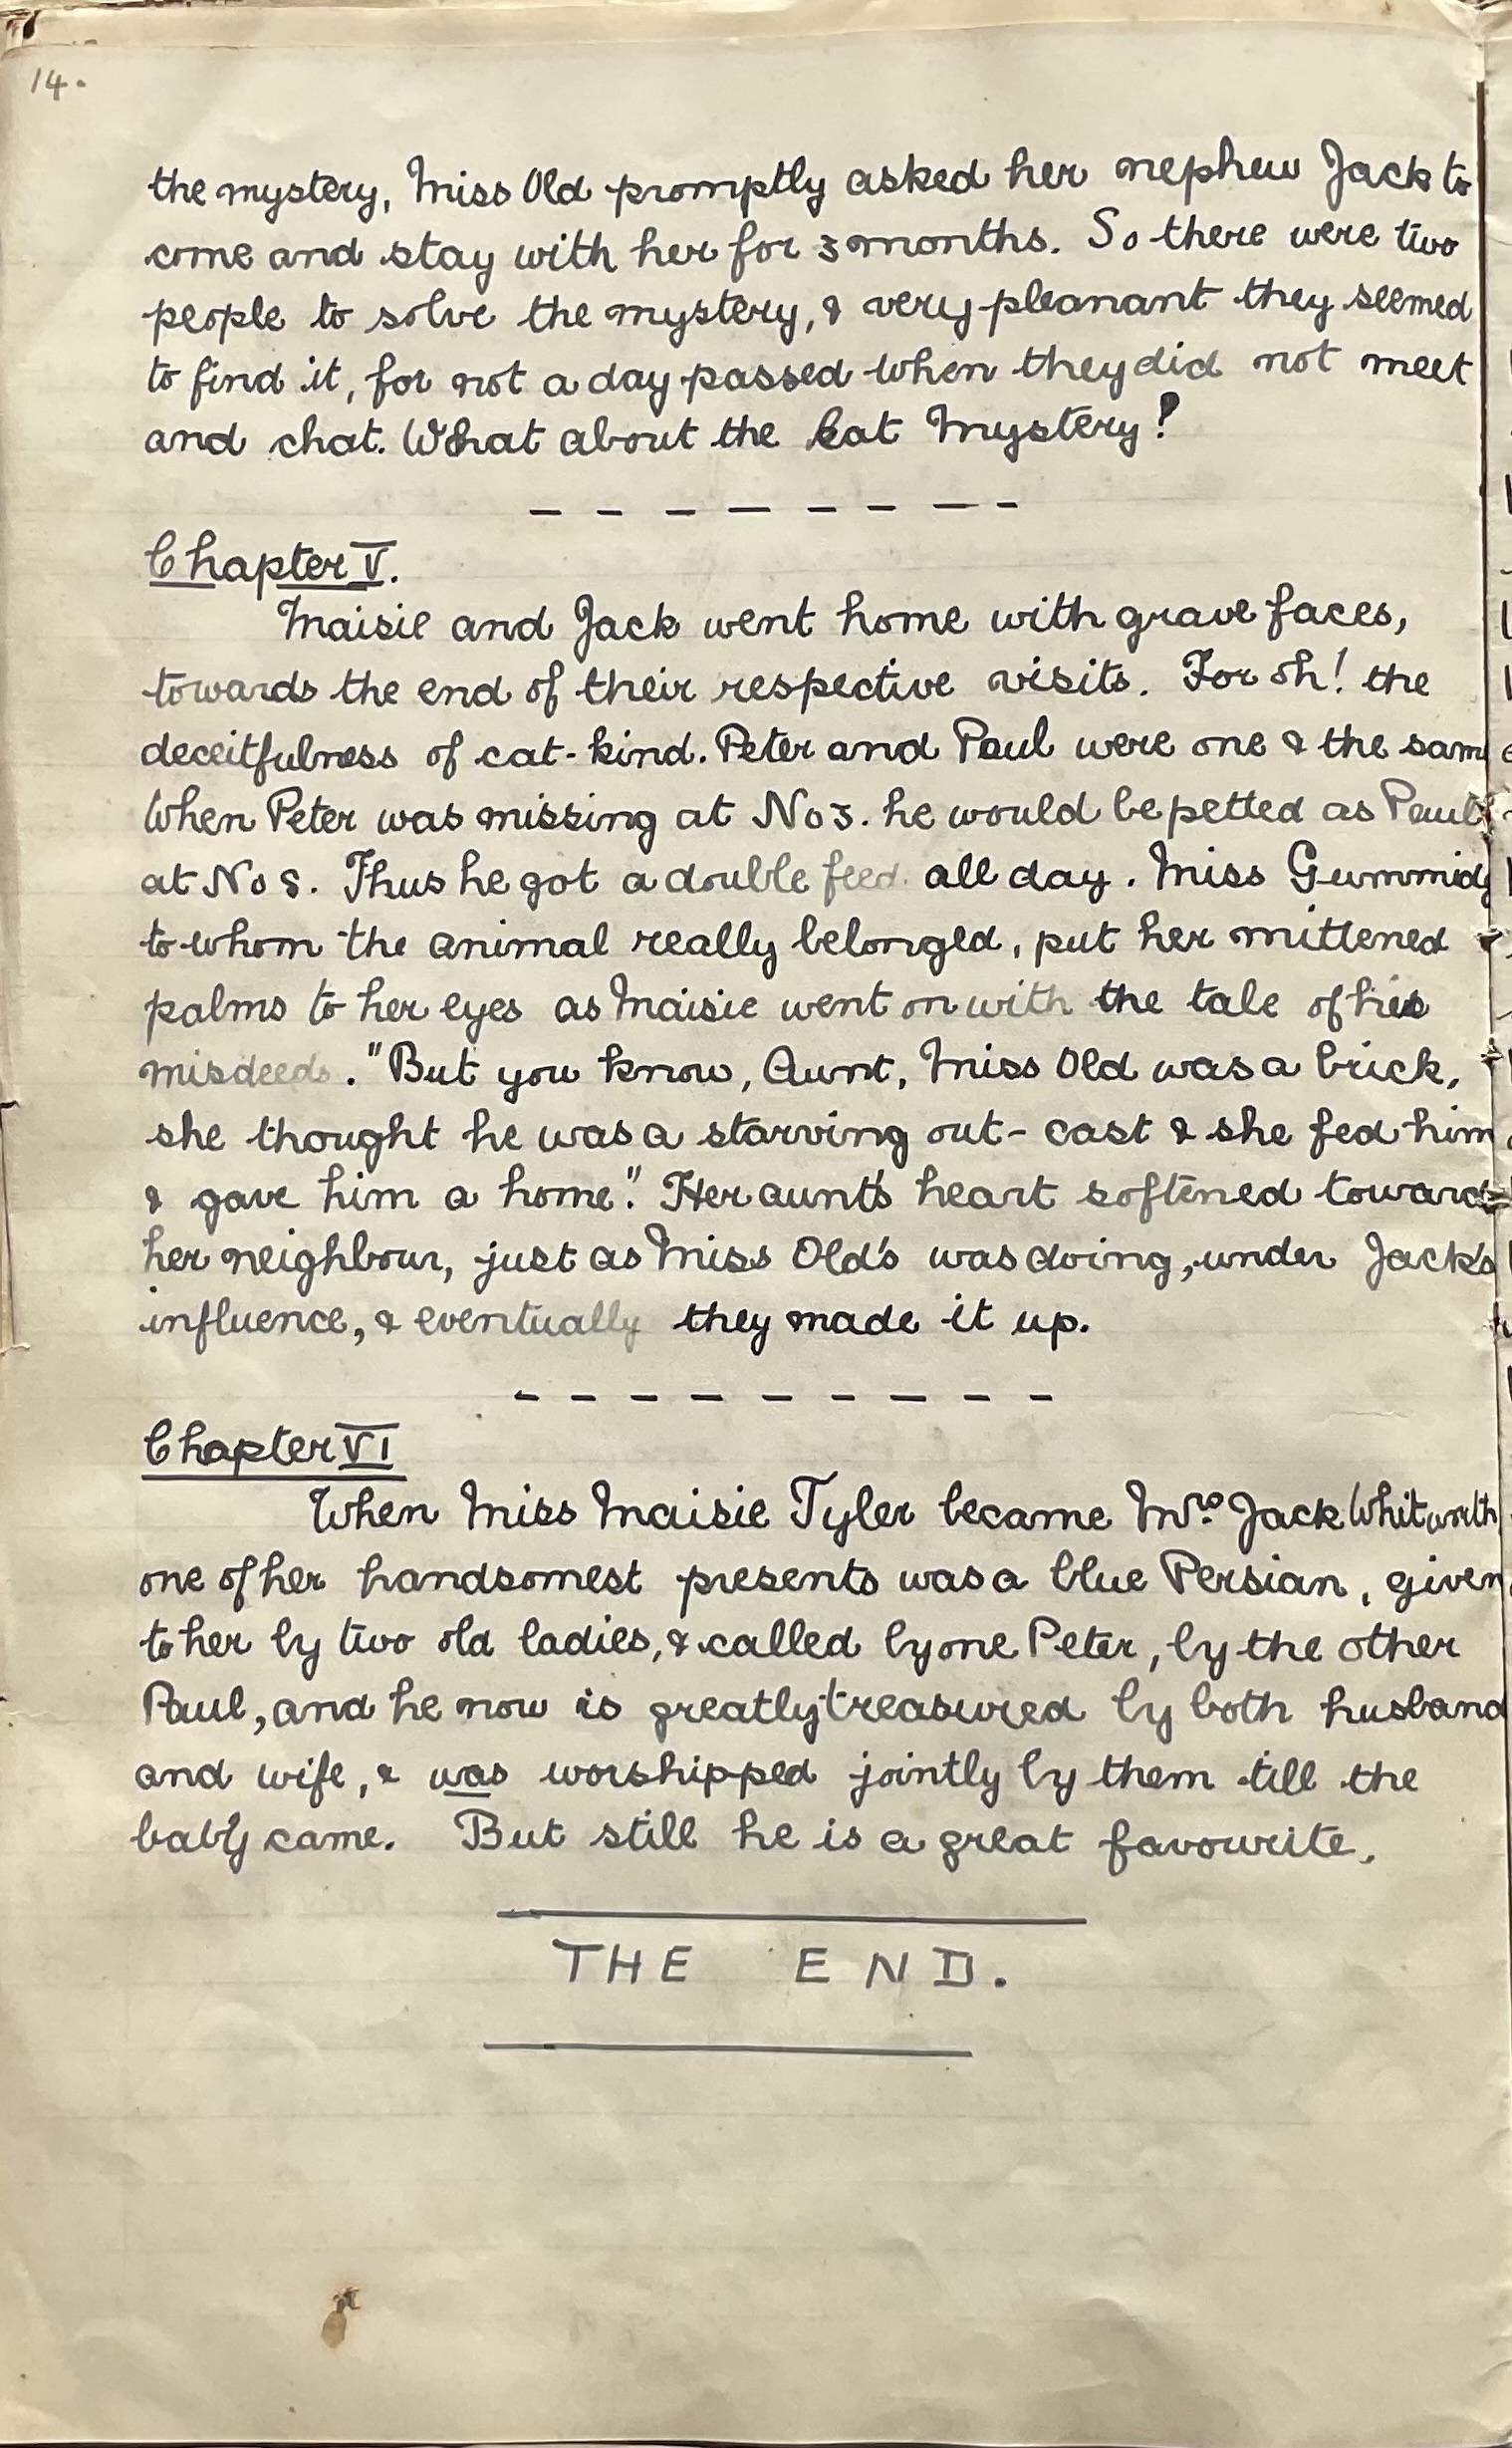 14.
the mystery, Miss Old promptly asked her nephew Jack to
come and stay with her for 3 months. So there were two
people to solve the mystery, & very pleanant they seemed
to find it, for not a day passed when they did not meet
and chat. What about the Cat Mystery?
- - - - - - - -
Chapter V.
Maisie and Jack went home with grave faces,
towards the end of their respective visits. For oh! the
deceitfulness of cat-kind. Peter and Paul were one & the sam
When Peter was missing at No 3. he would be petted as Paul
at No 8. Thus he got a double feed all day. Miss Gummidg
to whom the animal really belonged, put her mittened
palms to her eyes as Maisie went on with the tale of his
misdeeds. "But you know, Aunt, Miss Old was a brick,
she thought he was a starving out-cast & she fed him
& gave him a home." Her aunt's heart softened towards
her neighbour, just as Miss Old's was doing, under Jack's
influence, & eventually they made it up.
- - - - - - - - - -
Chapter VI
When Miss Maisie Tyler became Mrs. Jack Whitworth
one of her handsomest presents was a blue Persian, given
to her by two old ladies, & called by one Peter, by the other
Paul, and he now is greatly treasured by both husband
and wife, & was worshipped jointly by them till the
baby came. But still he is a great favourite.
THE END.